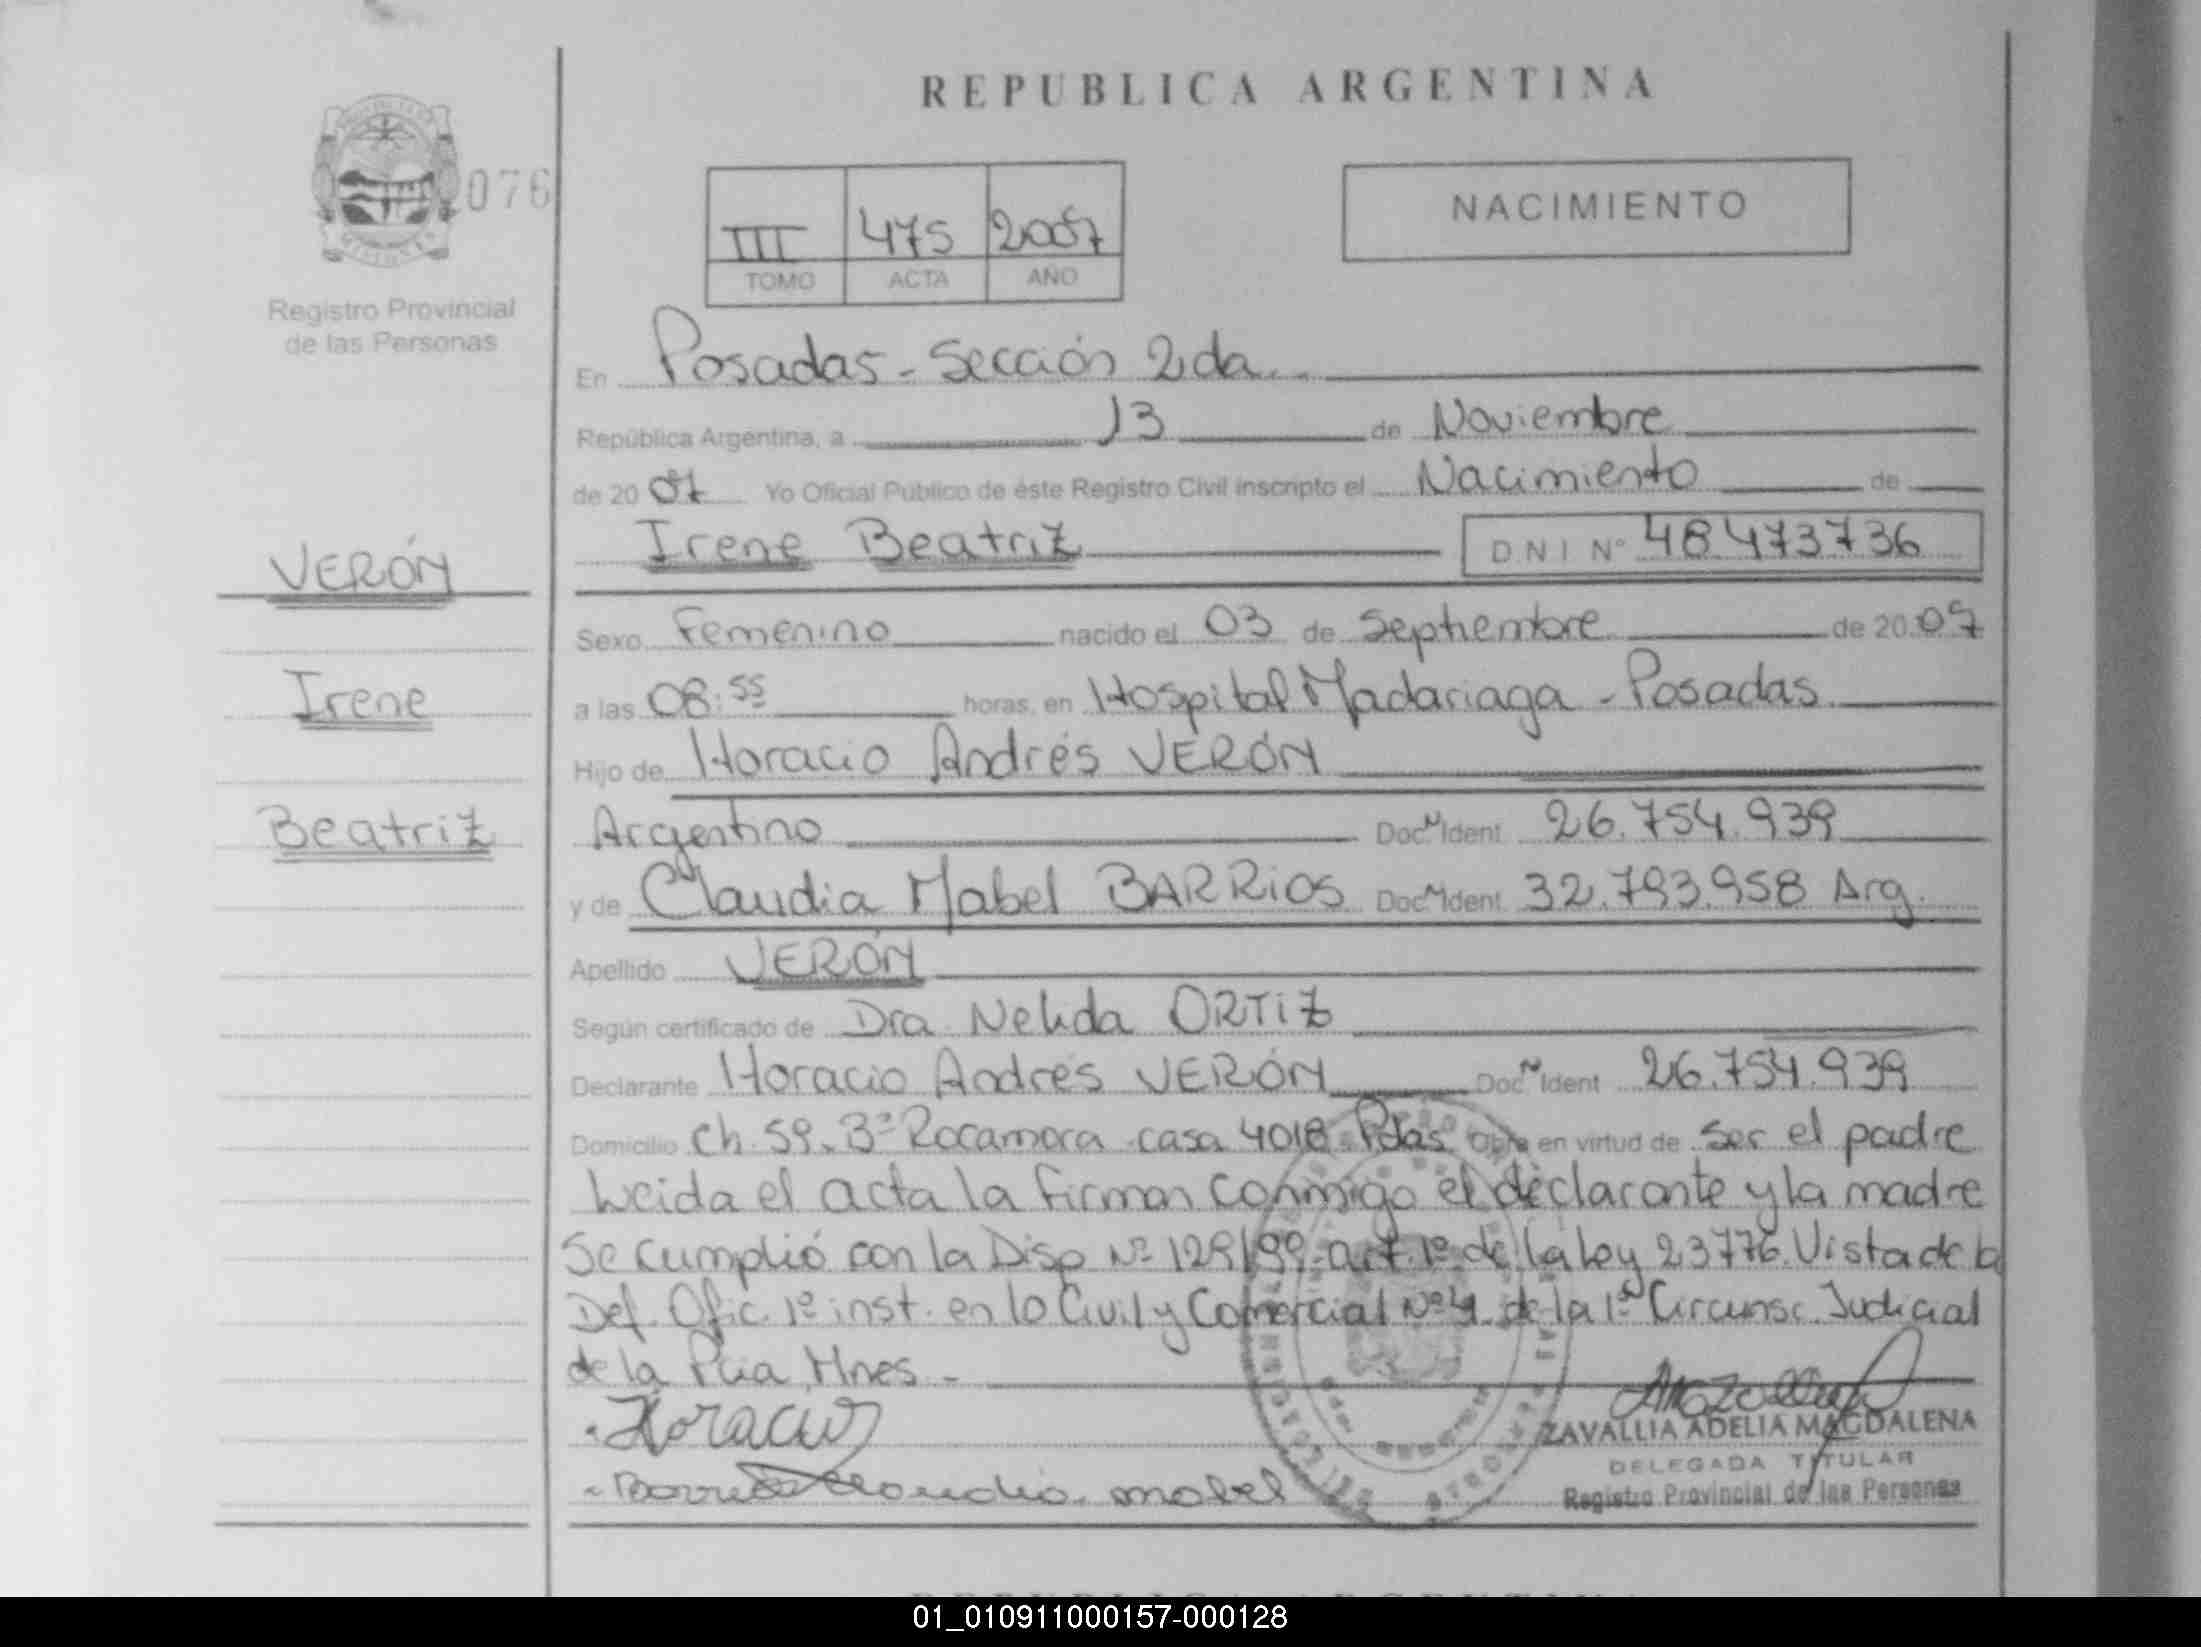 REPUBLICA ARGENTINA
076
Registro Provincial
de las Personas
III 475 2007
TOMO ACTA AÑO
NACIMIENTO
En Posadas - Sección 2da.
República Argentina, a 13 de Noviembre
de 20 07 Yo Oficial Público de éste Registro Civil inscripto el Nacimiento de
Irene Beatriz D N I Nº 48473736
VERÓN
Irene
Beatriz
Sexo Femenino nacido el 03 de Septiembre de 20 07
a las 08:55 horas, en Hospital Madariaga - Posadas
Hijo de Horacio Andrés VERÓN
Argentino Doc. Ident. 26.754.939
y de Claudia Mabel BARRIOS Doc. Ident. 32.793.958 Arg.
Apellido VERÓN
Según certificado de Dra Nelida ORTIZ
Declarante Horacio Andrés VERÓN Doc. Ident. 26.754.939
Domicilio Ch. 59. Bº Rocamora casa 4018 Pdas Obra en virtud de ser el padre
Leida el acta la firman conmigo el declarante y la madre
Se cumplió con la Disp Nº 129/99 - art. 1º de la ley 23776. Vista de la
Def. Ofic. 1º inst. en lo Civil y Comercial Nº 4 de la 1º Circunsc. Judicial
de la Pcia. Mnes. -
Horacio
Barrios Claudia mabel
ZAVALLIA ADELIA MAGDALENA
DELEGADA TITULAR
Registro Provincial de las Personas
01_010911000157-000128